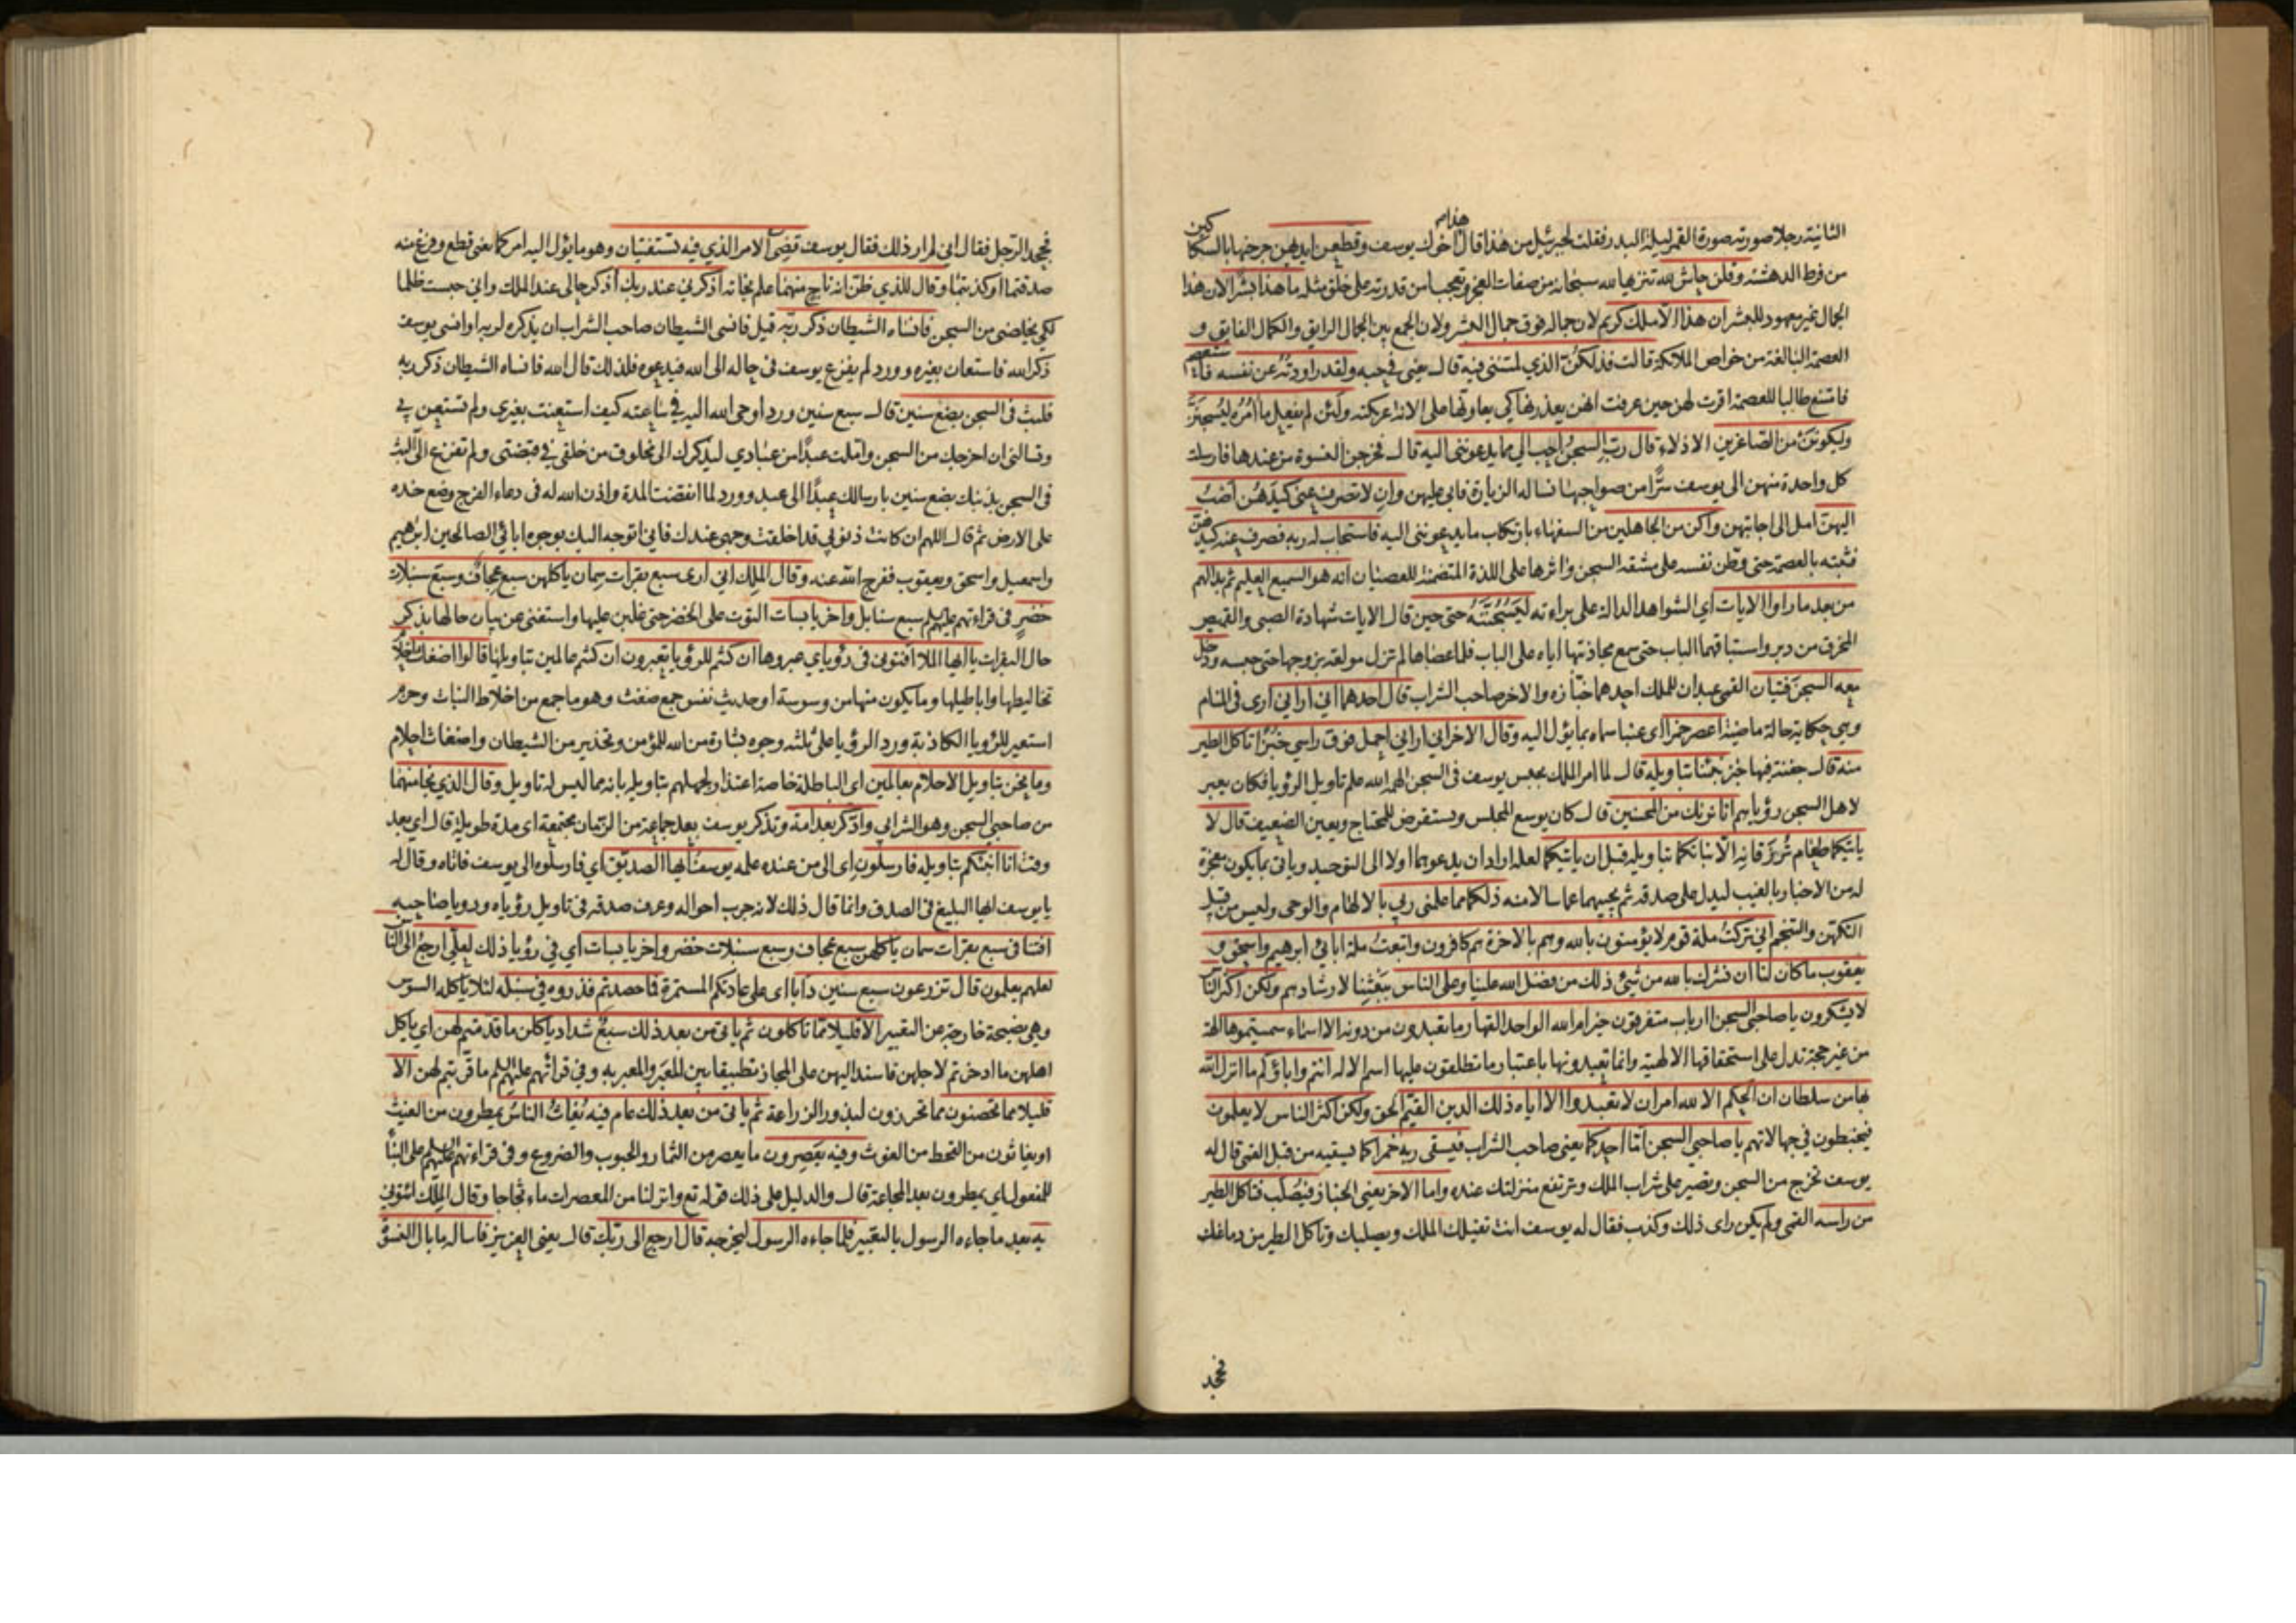 الثانية رجلا صورته صورة القمر ليلة البدر فقلت لجبرئيل من هذا قال هذا اخوك يوسف وقطعن ايديهن جرحنها بالسكاكين
من فرط الدهشة وقلن حاش لله تنزيها لله سبحانه من صفات العجز وتعجبا من قدرته على خلق مثله ما هذا بشرا لان هذا
الجمال غير معهود للبشر ان هذا الا ملك كريم لان جماله فوق جمال البشر ولان الجمع بين الجمال الرايق والكمال الفايق و
العصمة البالغة من خواص الملائكة قالت فذلكن الذي لمتنني فيه قال يعني في حبه ولقد راودته عن نفسه فاستعصم
فامتنع طالبا للعصمة اقرت لهن حين عرفت انهن يعذرنها كي يعاونها على الانة عريكته ولئن لم يفعل ما آمره ليسجنن
وليكونن من الصاغرين الاذلاء قال رب السجن احب الي مما يدعونني اليه قال فخرجن النسوة من عندها فارسلت
كل واحدة منهن الى يوسف سرا من صواحبها تساله الزيارة فابى عليهن وان لا تصرف عني كيدهن اصب
اليهن امل الى اجابتهن واكن من الجاهلين من السفهاء بارتكاب ما يدعونني اليه فاستجاب له ربه فصرف عنه كيدهن
فثبته بالعصمة حتى وطن نفسه على مشقة السجن واثرها على اللذة المتضمنة للعصيان انه هو السميع العليم ثم بدا لهم
من بعد ما راوا الايات اي الشواهد الدالة على براءته ليسجننه حتى حين قال الايات شهادة الصبي والقميص
المخرق من دبر واستباقهما الباب حتى سمع مجاذبتها اياه على الباب فلما عصاها لم تزل مولعة بزوجها حتى حبسه ودخل
معه السجن فتيان القمي عبدان للملك احدهما خبازه والاخر صاحب الشراب قال احدهما اني اراني ارى في المنام
وهي حكاية حالة ماضية اعصر خمرا اي عنبا سماه بما يؤل اليه وقال الاخر اني اراني احمل فوق راسي خبزا تاكل الطير
منه قال جفنة فيها خبز نبئنا بتاويله قال لما امر الملك بحبس يوسف في السجن الهمه الله علم تاويل الرؤيا فكان يعبر
لاهل السجن رؤياهم انا نريك من المحسنين قال كان يوسع المجلس ويستقرض للمحتاج ويعين الضعيف قال لا
ياتيكما طعام ترزقانه الا نباتكما بتاويله قبل ان ياتيكما لعله اراد ان يدعوهما اولا الى التوحيد وياتي بما يكون معجزة
له من الاخبار بالغيب ليدل على صدقه ثم يجيبهما عما سالا منه ذلكما مما علمني ربي بالالهام والوحي وليس من قبيل
التكهن والتنجم اني تركت ملة قوم لا يؤمنون بالله وهم بالاخرة هم كافرون واتبعت ملة ابائي ابرهيم واسحق و
يعقوب ما كان لنا ان نشرك بالله من شيئ ذلك من فضل الله علينا وعلى الناس ببعثنا لارشادهم ولكن اكثر الناس
لا يشكرون يا صاحبي السجن ارباب متفرقون خير ام الله الواحد القهار ما تعبدون من دونه الا اسماء سميتموها الهة
من غير حجة تدل على استحقاقها الالهية وانما تعبدونها باعتبار ما تطلقون عليها اسم الاله انتم واباؤكم ما انزل الله
بها من سلطان ان الحكم الا لله امر ان لا تعبدوا الا اياه ذلك الدين القيم الحق ولكن اكثر الناس لا يعلمون
فيخبطون في جهالاتهم يا صاحبي السجن اما احدكما يعني صاحب الشراب فيسقي ربه خمرا كما يسقيه من قبل القمي قال له
يوسف تخرج من السجن وتصير على شراب الملك وترتفع منزلتك عنده واما الاخر يعني الخباز فيصلب فتاكل الطير
من راسه القمي ولم يكن راى ذلك وكذب فقال له يوسف انت تقتلك الملك ويصلبك وتاكل الطير من دماغك
فجحد
فجحد الرجل فقال اني لم ار ذلك فقال يوسف قضي الامر الذي فيه تستفتيان وهو ما يؤل اليه امركما يعني قطع وفرغ منه
صدقتما او كذبتما وقال للذي ظن انه ناج منهما علم نجاته اذكرني عند ربك اذكر حالي عند الملك واني حبست ظلما
لكي يخلصني من السجن فانساه الشيطان ذكر ربه قيل فانسى الشيطان صاحب الشراب ان يذكره لربه او انسى يوسف
ذكر الله فاستعان بغيره وورد لم يفزع يوسف في حاله الى الله فيدعوه فلذلك قال الله فانساه الشيطان ذكر ربه
فلبث في السجن بضع سنين قال سبع سنين وورد اوحى الله اليه في ساعته كيف استعنت بغيري ولم تستعن بي
وتسالني ان اخرجك من السجن واملت عبدا من عبادي ليذكرك الى مخلوق من خلقي في قبضتي ولم تفزع الي البث
في السجن بذنبك بضع سنين بارسالك عبدا الى عبد وورد لما انقضت المدة واذن الله له في دعاء الفرج وضع خده
على الارض ثم قال اللهم ان كانت ذنوبي قد اخلقت وجهي عندك فاني اتوجه اليك بوجوه ابائي الصالحين ابرهيم
واسمعيل واسحق ويعقوب ففرج الله عنه وقال الملك اني ارى سبع بقرات سمان ياكلهن سبع عجاف وسبع سنبلات
خضر في قراءتهم عليهم السلم سبع سنابل واخر يابسات التوت على الخضر حتى غلبن عليها واستغنى عن بيان حالها بذكر
حال البقرات يا ايها الملا افتوني في رؤياي عبروها ان كنتم للرؤيا تعبرون ان كنتم عالمين بتاويلها قالوا اضغاث احلام
تخاليطها واباطيلها وما يكون منها من وسوسة او حديث نفس جمع ضغث وهو ما جمع من اخلاط النبات وحزم
استعير للرؤيا الكاذبة وورد الرؤيا على ثلثة وجوه بشارة من الله للمؤمن وتحذير من الشيطان واضغاث احلام
وما نحن بتاويل الاحلام بعالمين اي الباطلة خاصة اعتذار لجهلهم بتاويله بانه مما ليس له تاويل وقال الذي نجا منهما
من صاحبي السجن وهو الشرابي وادكر بعد امة وتذكر يوسف بعد جماعة من الزمان مجتمعة اي مدة طويلة قال اي بعد
وقت انا انبئكم بتاويله فارسلون اي الى من عنده علمه يوسف ايها الصديق اي فارسلوه الى يوسف فاتاه وقال له
يا يوسف ايها البليغ في الصدق وانما قال ذلك لانه جرب احواله وعرف صدقه في تاويل رؤياه ورويا صاحبه
افتنا في سبع بقرات سمان ياكلهن سبع عجاف وسبع سنبلات خضر واخر يابسات اي في رؤيا ذلك لعلي ارجع الى الناس
لعلهم يعلمون قال تزرعون سبع سنين دابا اي على عادتكم المستمرة فما حصدتم فذروه في سنبله لئلا ياكله السوس
وهي نصيحة خارجة عن التعبير الا قليلا مما تاكلون ثم ياتي من بعد ذلك سبع شداد ياكلن ما قدمتم لهن اي ياكل
اهلهن ما ادخرتم لاجلهن فاسند اليهن على المجاز تطبيقا بين المعبر والمعبر به وفي قراءتهم عليهم السلم ما قربتم لهن الا
قليلا مما تحصنون مما تحرزون لبذور الزراعة ثم ياتي من بعد ذلك عام فيه يغاث الناس يمطرون من الغيث
او يغاثون من القحط من الغوث وفيه يعصرون ما يعصر من الثمار والحبوب والضروع وفي قراءتهم عليهم السلم على البناء
للمفعول اي يمطرون بعد المجاعة قال والدليل على ذلك قوله تع وانزلنا من المعصرات ماء ثجاجا وقال الملك ائتوني
به بعد ما جاءه الرسول بالتعبير فلما جاءه الرسول ليخرجه قال ارجع الى ربك قال يعني العزيز فاساله ما بال النسوة